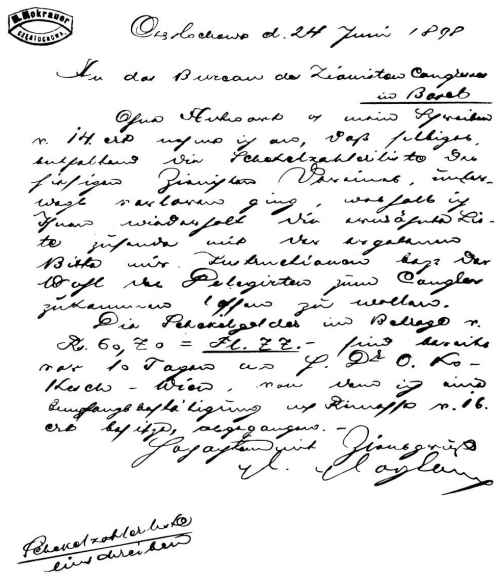 M. Mokrauer
CZĘSTOCHOWA
Częstochowa d. 24 Juni 1898
An das Bureau des Zionisten Congresses
in Basel
Ohne Antwort auf mein Schreiben
v. 14. crt nehme ich an, daß selbiges,
enthaltend die Schekelzahlerliste des
hiesigen Zionisten Vereines, unter-
wegs verloren ging, weshalb ich
Ihnen wiederholt die erwähnte Lis-
te zusende mit der ergebenen
Bitte mir Instructionen bezg. der
Wahl des Delegirten zum Congress
zukommen lassen zu wollen.
Die Schekelgelder im Betrage v.
Rs. 60,70 = Fl. 77.- sind bereits
vor 10 Tagen an H. Dr O. Ko-
kesch - Wien, von dem ich eine
Empfangsbestätigung v. 16.
crt besitze, abgegangen. -
Hochachtend mit Zionsgruß
Schekelzahlerliste
einschreiben